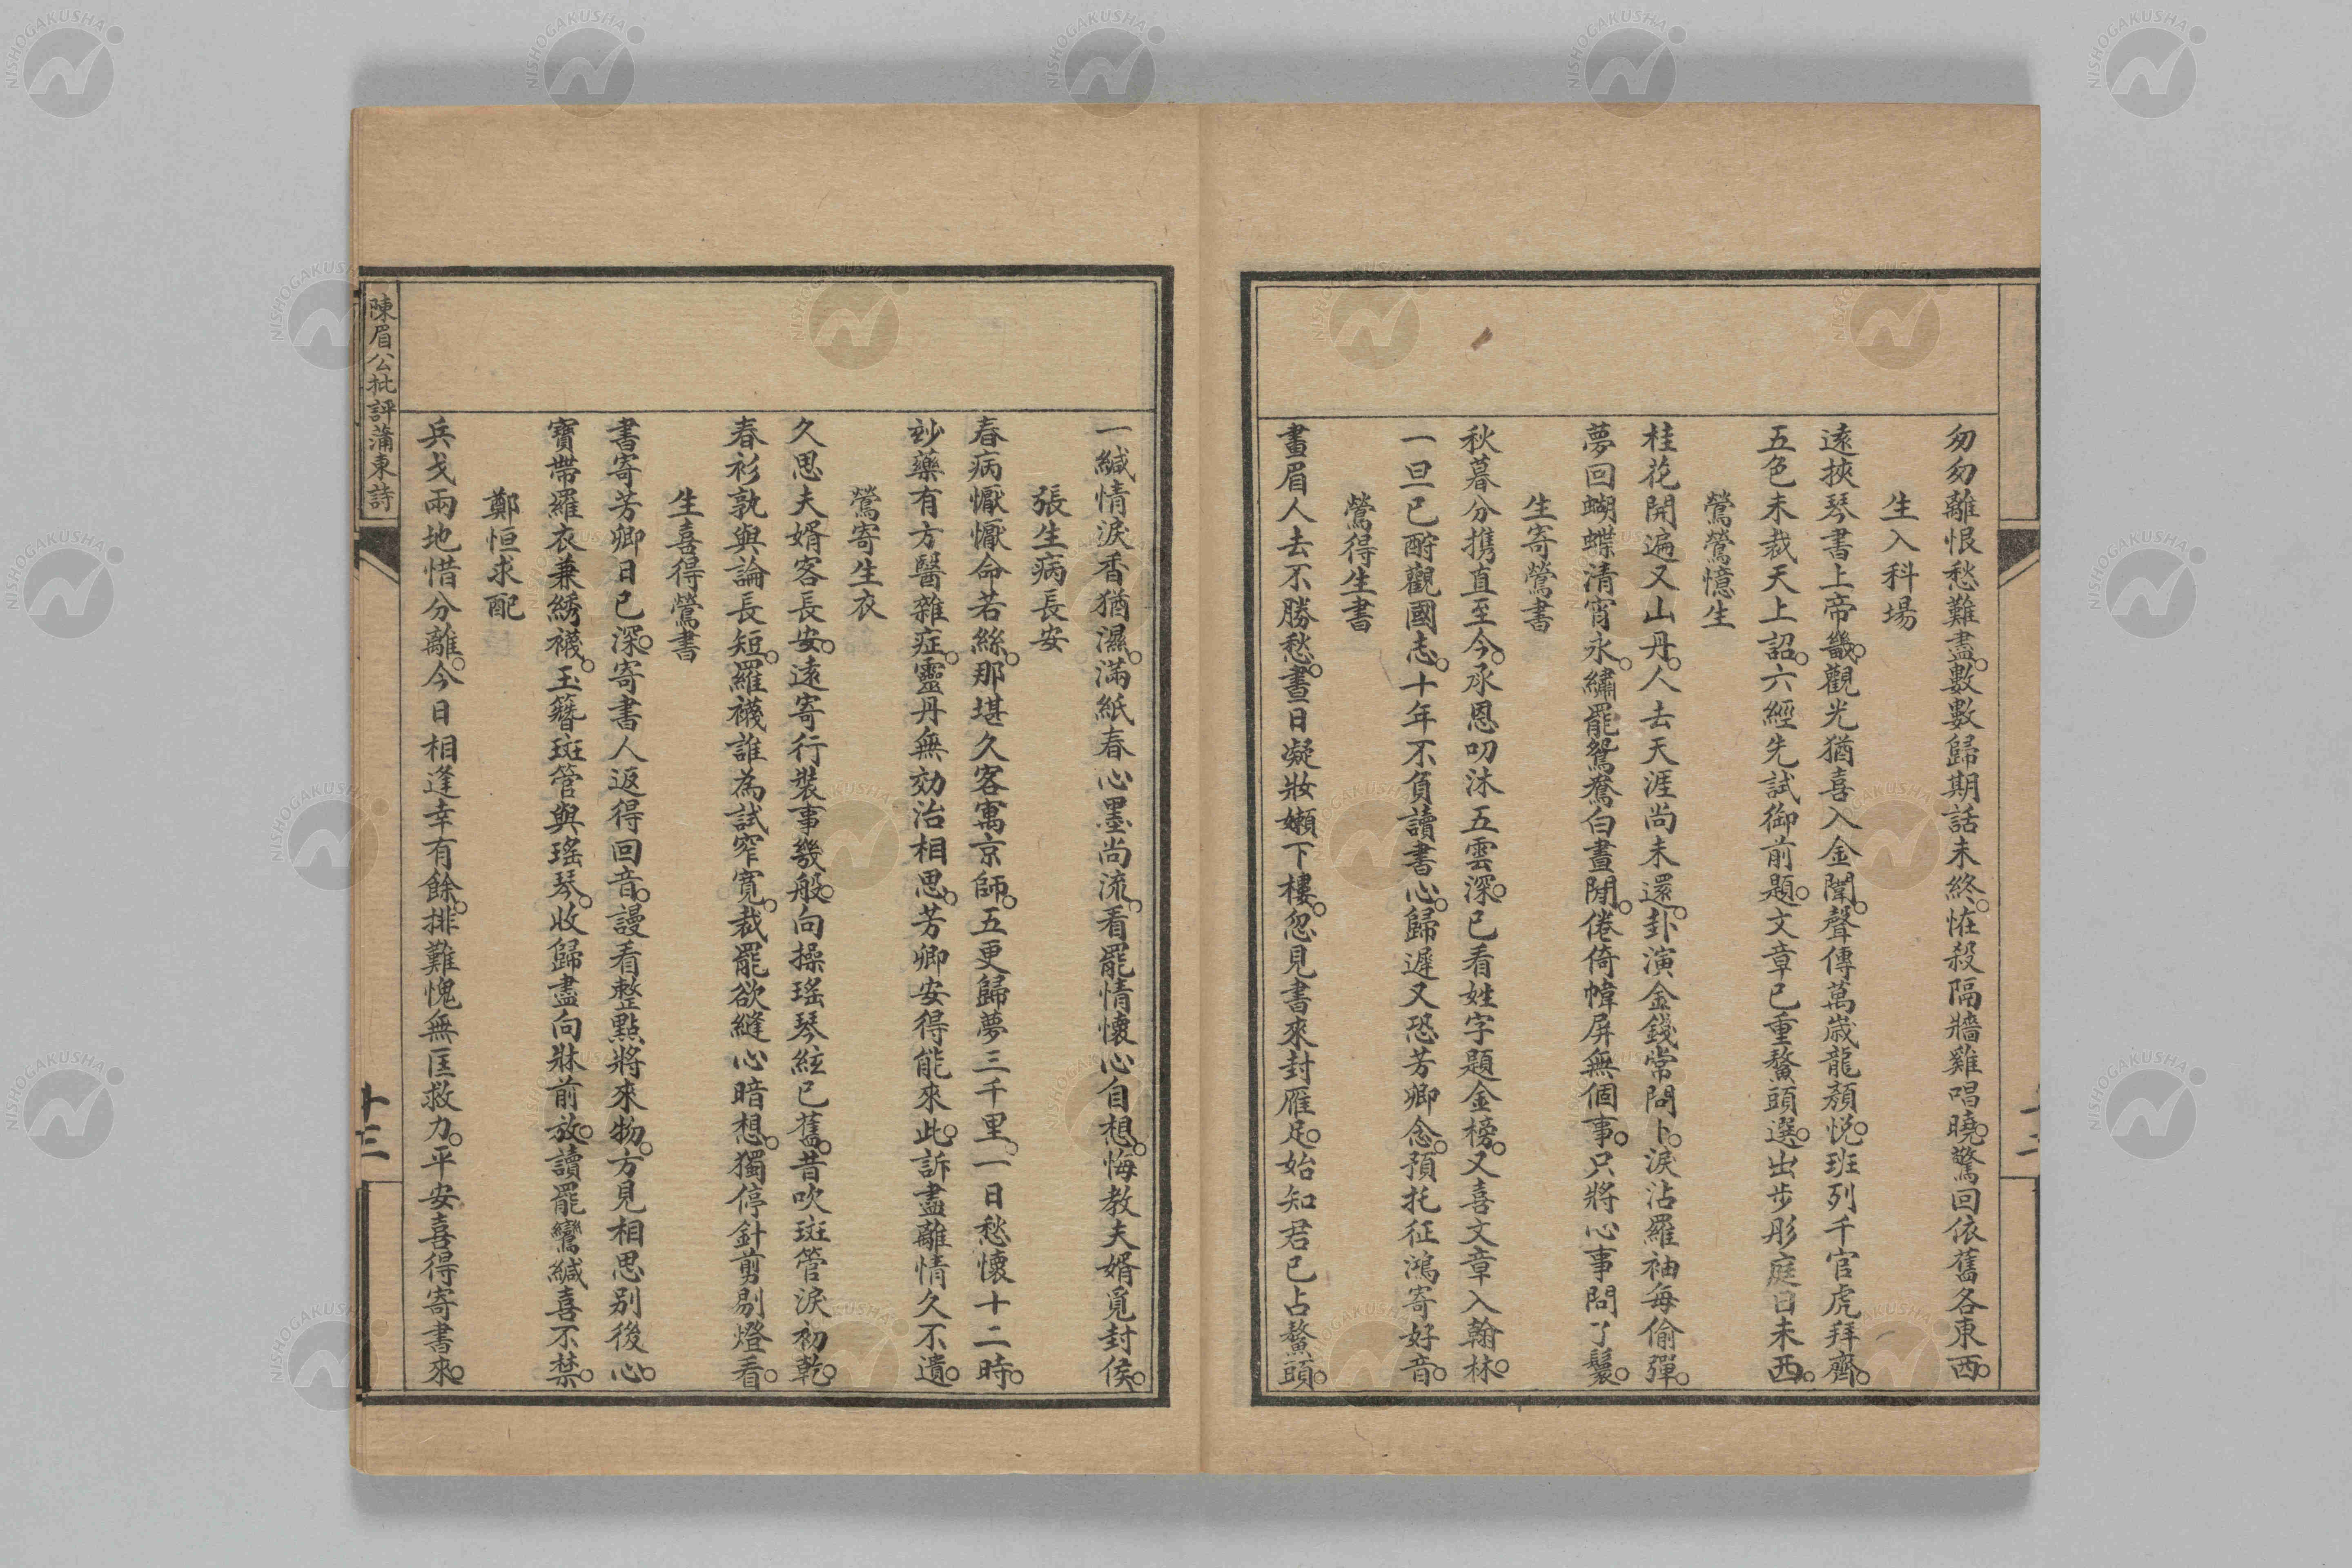 匆匆離恨愁難盡數數歸期話未終恠殺隔牆雞唱曉驚回依舊各東西
生入科場
遠挾琴書上帝畿觀光猶喜入金闈聲傳萬歲龍顏悅班列千官虎拜齊
五色未裁天上詔六經先試御前題文章已重鰲頭選出步彤庭日未西
鶯鶯憶生
桂花開遍又山丹人去天涯尚未還卦演金錢常問卜淚沾羅袖每偷彈
夢回蝴蝶清宵永繡罷鴛鴦白晝閒倦倚幃屏無個事只將心事問了鬟
生寄鶯書
秋暮分携直至今承恩叨沐五雲深已看姓字題金榜又喜文章入翰林
一旦已酧觀國志十年不負讀書心歸遲又恐芳卿念預托征鴻寄好音
鶯得生書
畫眉人去不勝愁晝日凝妝嬾下樓忽見書來封雁足始知君已占鰲頭
一緘情淚香猶濕滿紙春心墨尚流看罷情懷心自想悔教夫婿覓封侯
張生病長安
春病懨懨命若絲那堪久客寓京師五更歸夢三千里一日愁懷十二時
玅藥有方醫雜症靈丹無効治相思芳卿安得能來此訴盡離情久不遺
鶯寄生衣
久思夫婿客長安遠寄行裝事幾般向操瑤琴絃已舊昔吹斑管淚初乾
春衫孰與論長短羅襪誰為試窄寬裁罷欲縫心暗想獨停針剪剔燈看
生喜得鶯書
書寄芳卿日已深寄書人返得回音謾看整點將來物方見相思別後心
寶帶羅衣兼綉襪玉簪斑管與瑤琴收歸盡向牀前放讀罷鸞緘喜不禁
鄭恒求配
兵戈兩地惜分離今日相逢幸有餘排難愧無匡救力平安喜得寄書來
陳眉公批評蒲東詩
十三